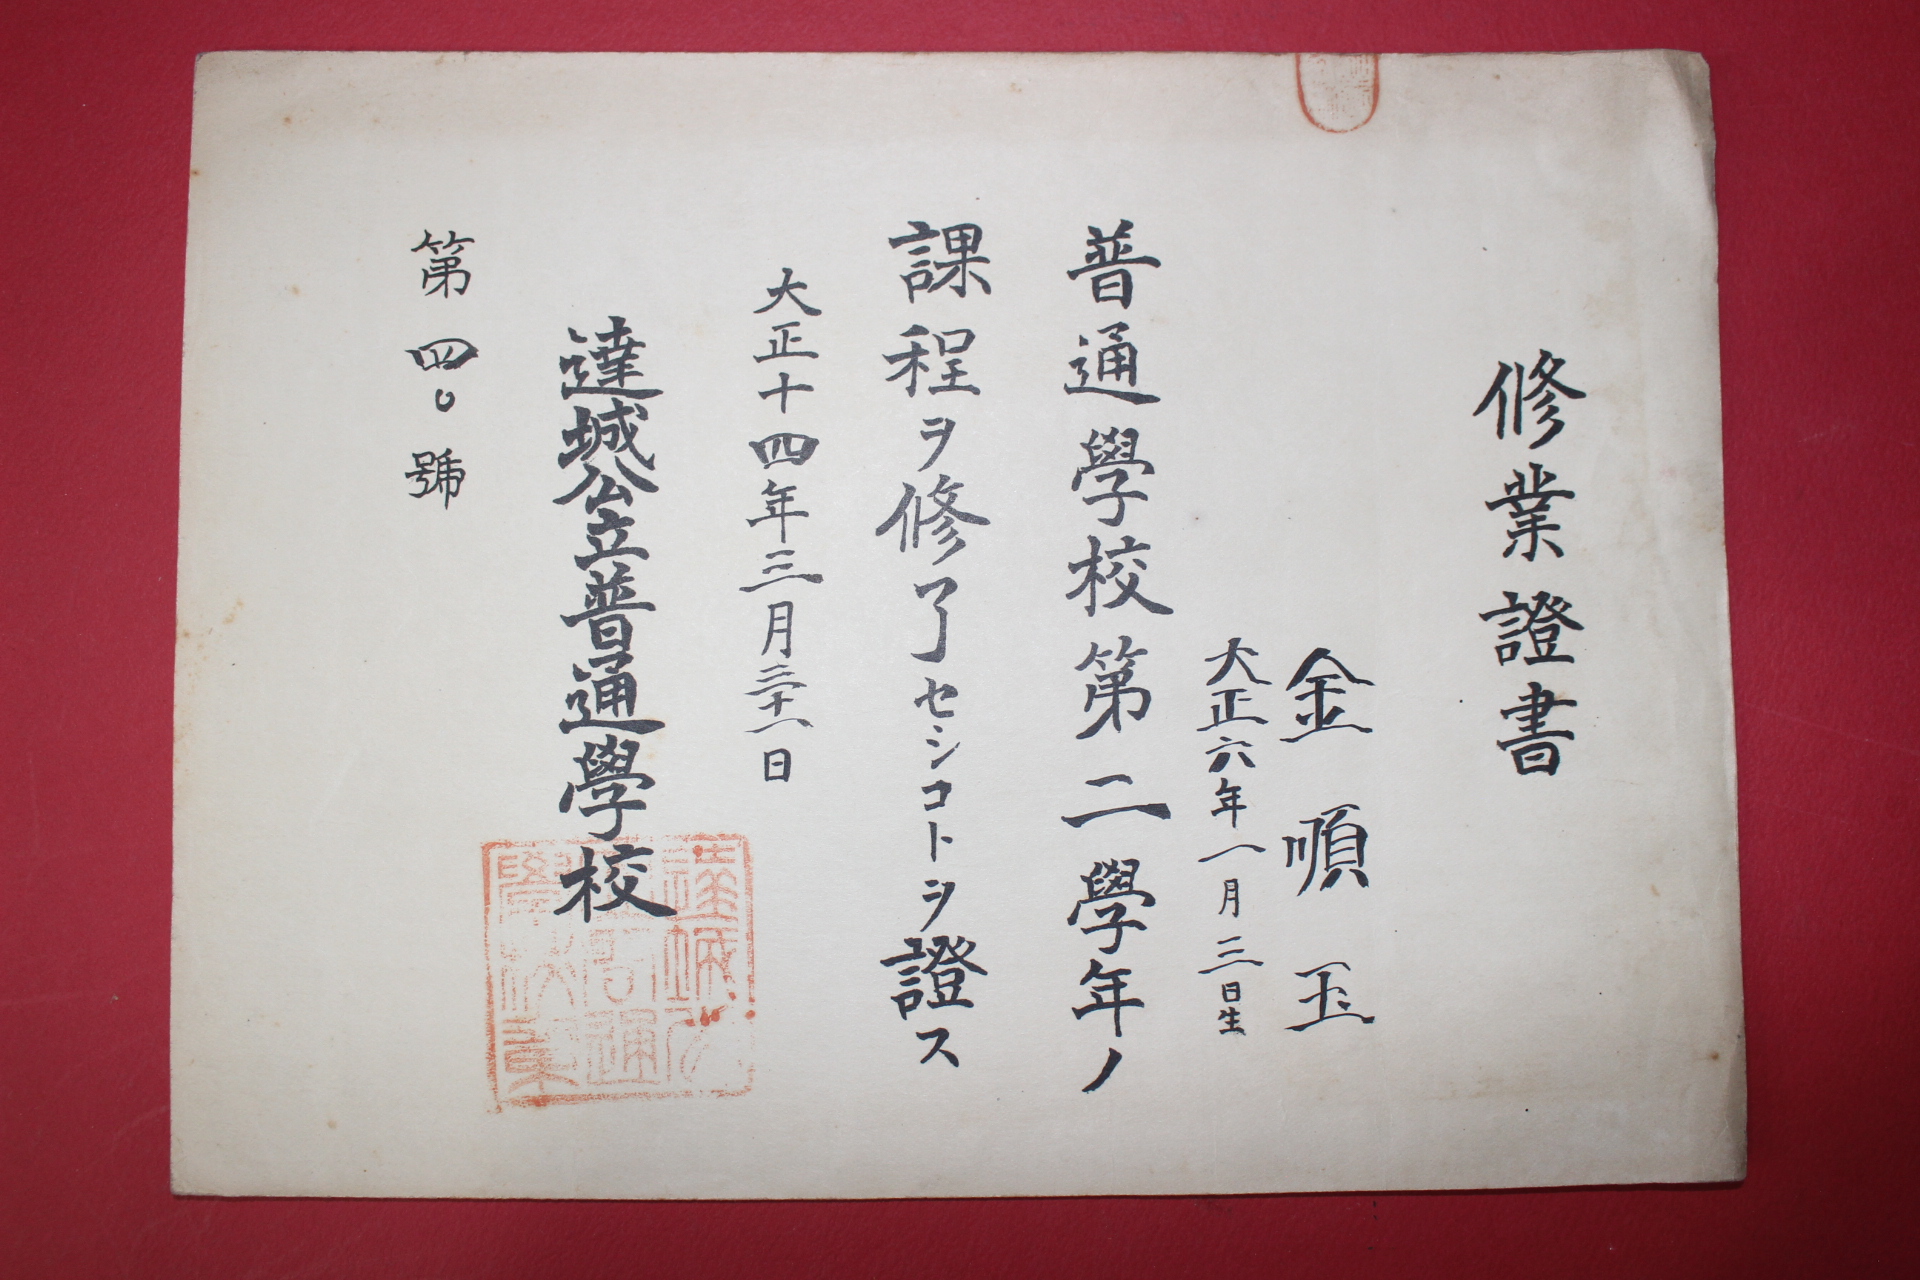 修業證書
金順玉
大正六年一月三日生
普通學校第二學年ノ
課程ヲ修了セシコトヲ證ス
大正十四年三月三十一日
達城公立普通學校
達城公
立普通
學校章
第四〇號